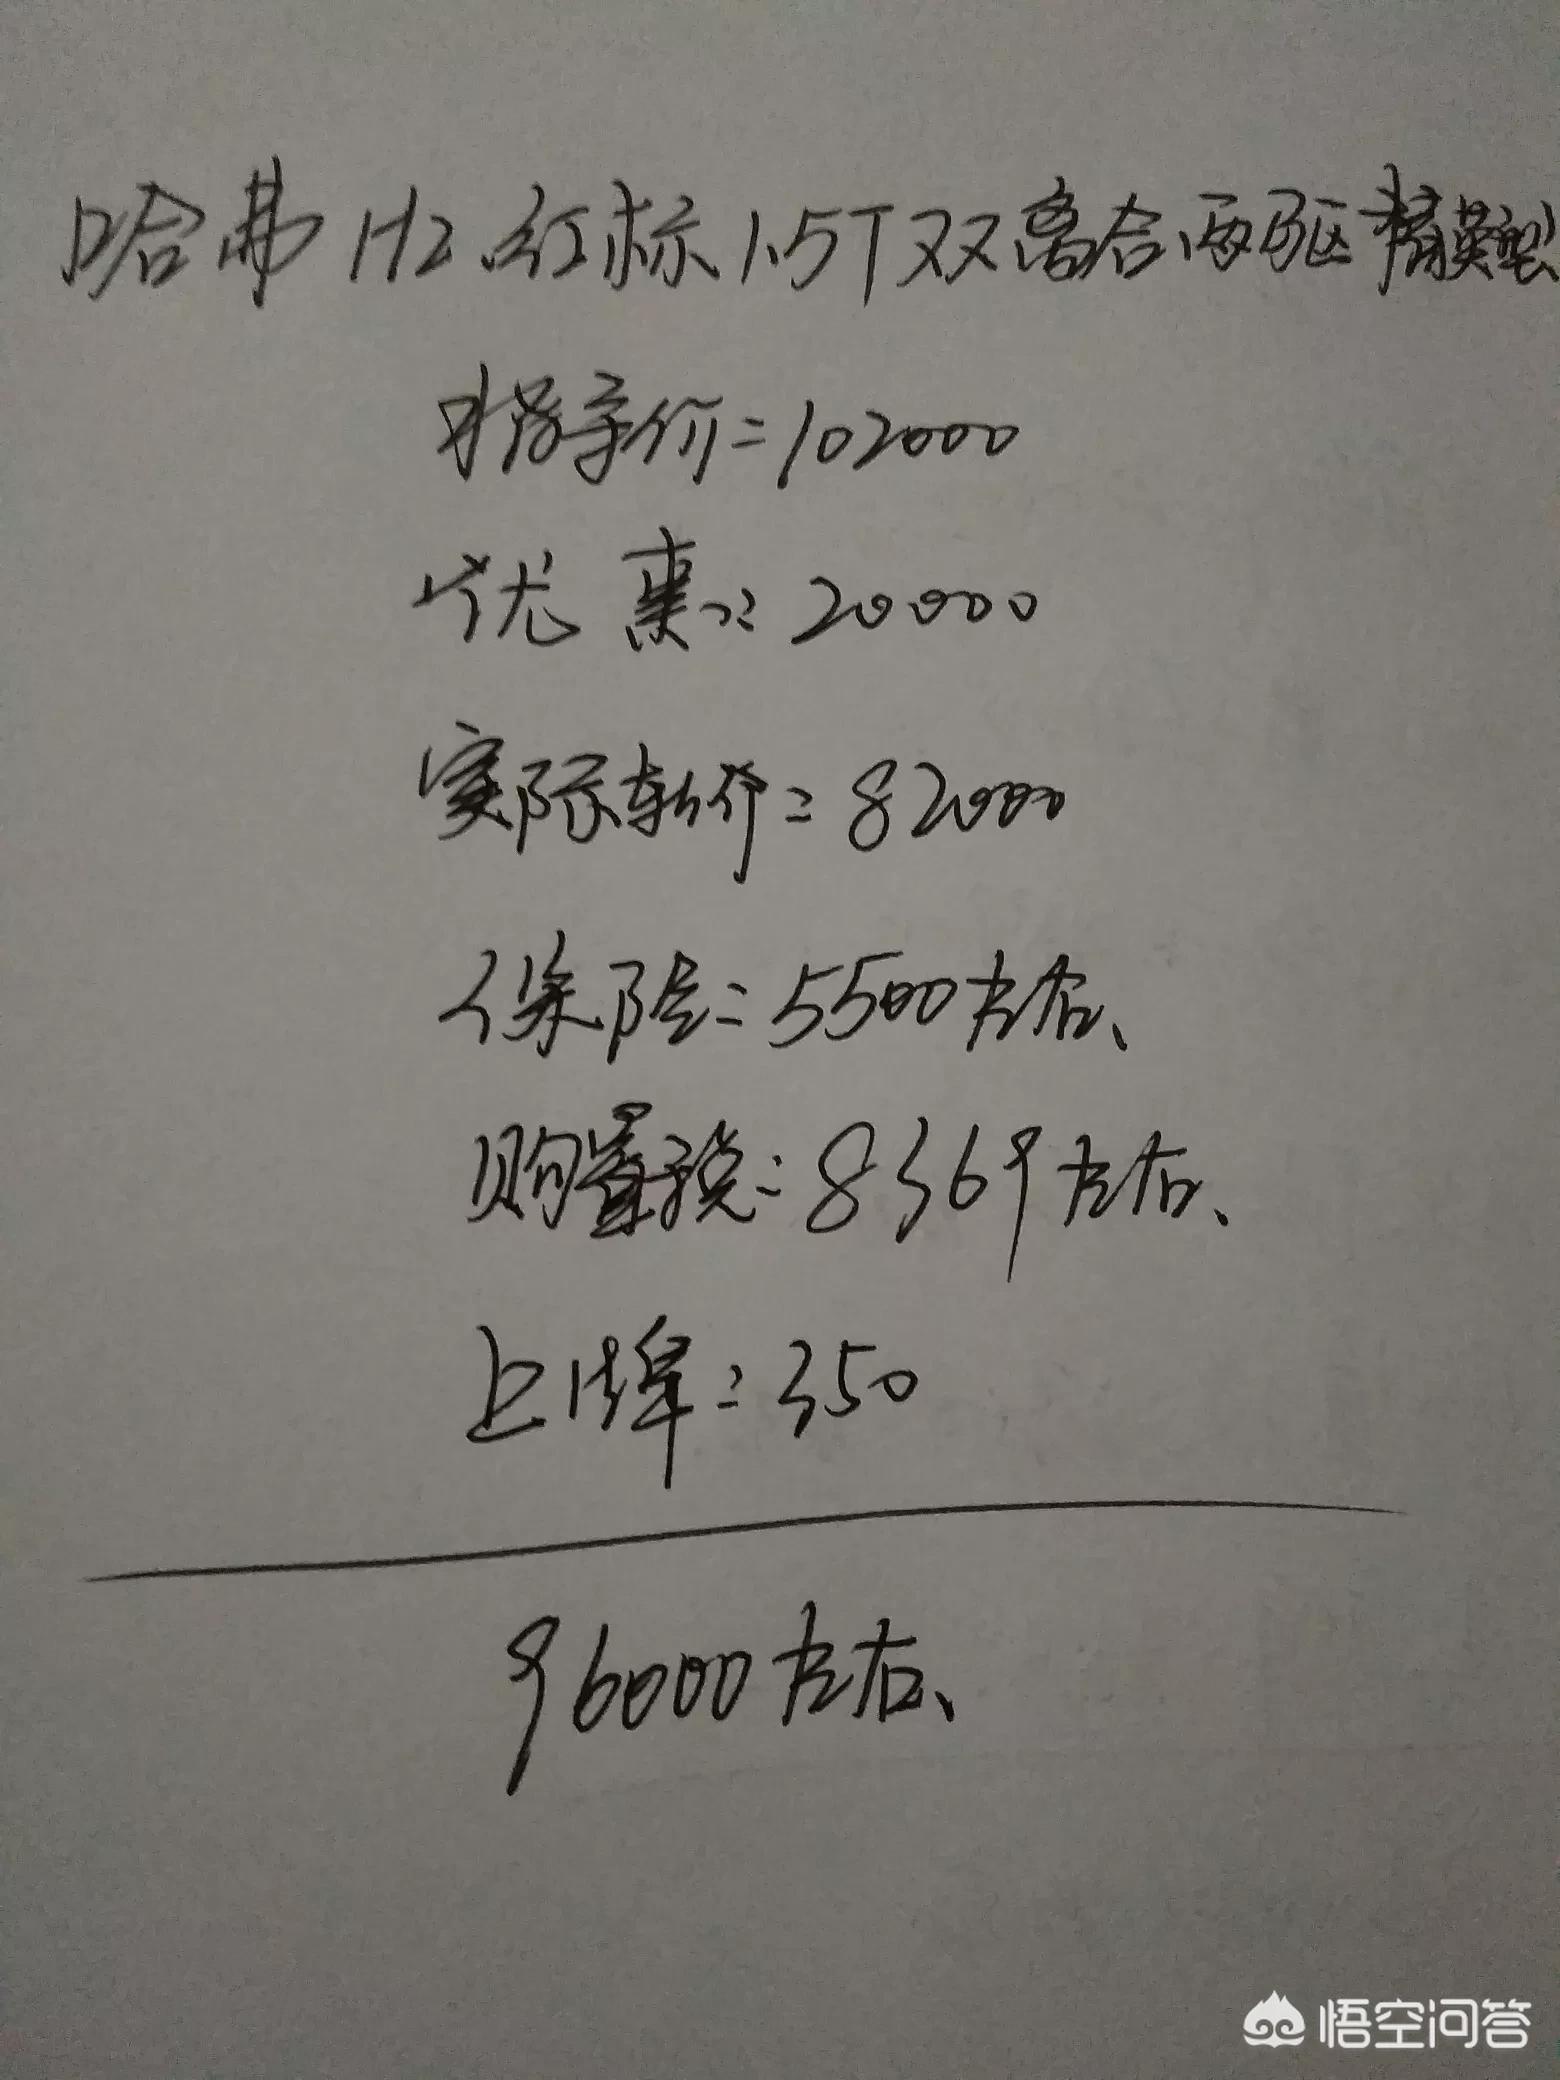 哈弗H2红标1.5T双离合两驱精英型
指导价=102000
优惠:20000
实际车价=82000
保险=5500左右、
购置税=8369左右、
上牌=350
96000左右、
悟空问答